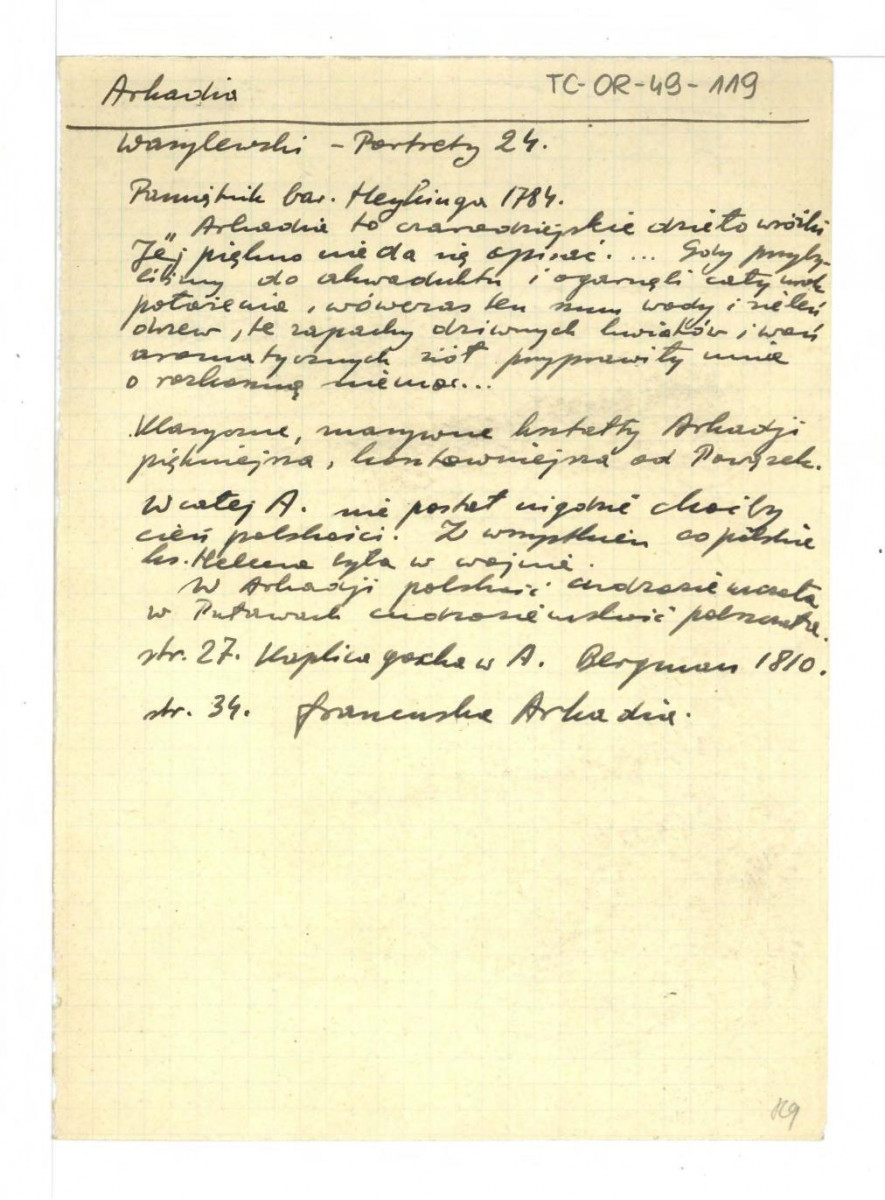 Arkadia
TC-OR-49-119
Wasylewski - Portrety 24.
Pamiętnik bar. Heykinga 1784.
„Arkadia to czarodziejskie dzieło wróżki
Jej piękno nie da się opisać. ... Gdy przyby-
liśmy do akwaduktu i ogarnęli cały urok
położenia, wówczas ten szum wody i zieleń
drzew, te zapachy dziwnych kwiatów i woń
aromatycznych ziół przyprawiły mnie
o rozkoszną niemoc...
Klasyczne, masywne kształty Arkadji
piękniejsza, kosztowniejsza od Powązek.
W całej A. nie postał nigdzie choćby
cień polskości. Z wszystkiem co polskie
ks. Helena była w wojnie.
W Arkadji polskość cudzoziemczała
w Puławach cudzoziemskość polszczała.
str. 27. Kaplica gocka w A. Bergman 1810.
str. 34. francuska Arkadia.